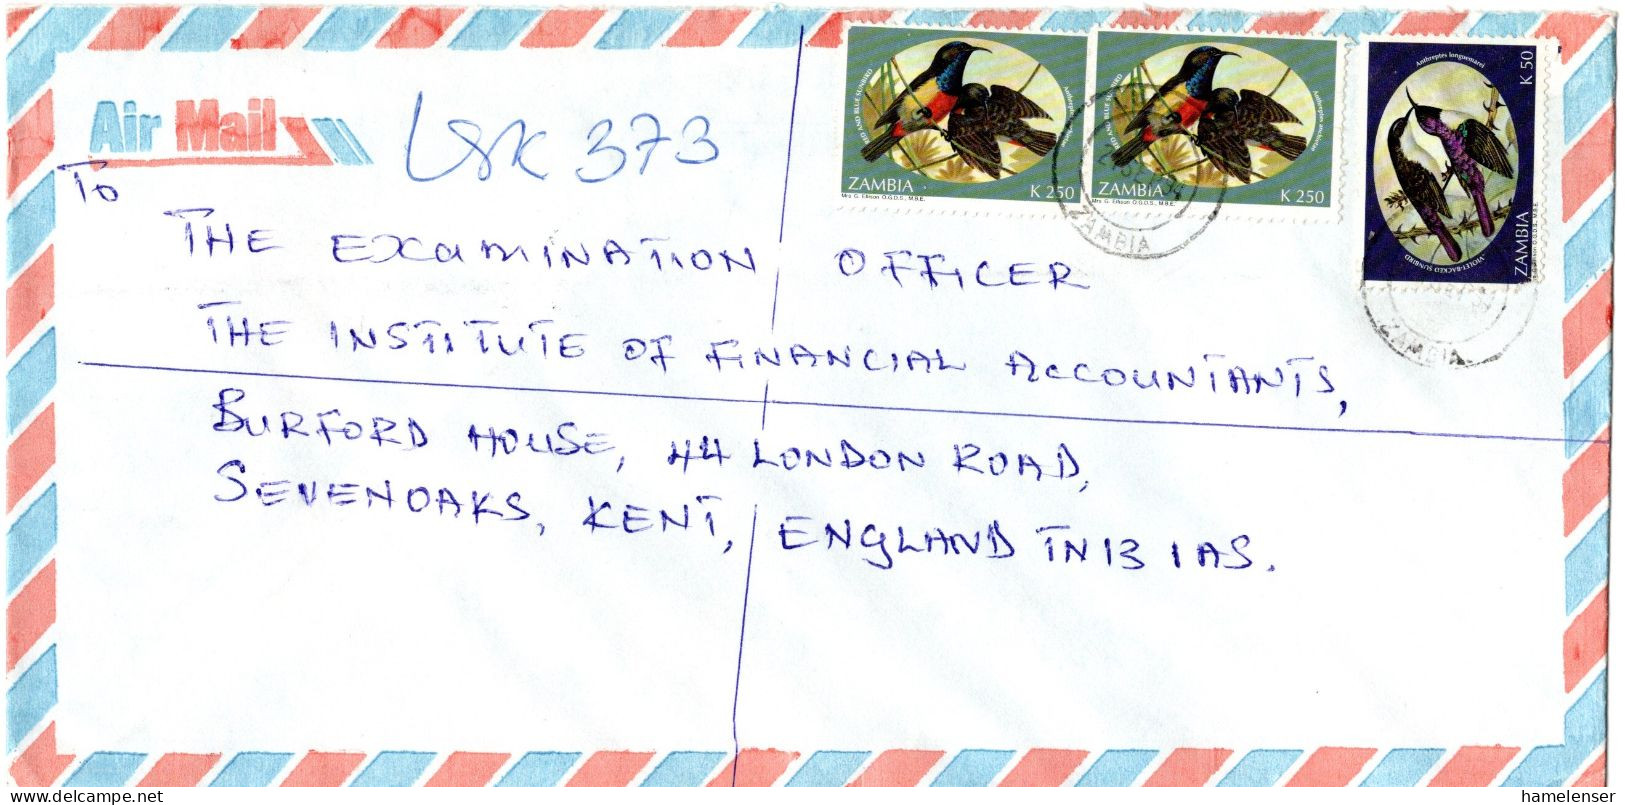 Air Mail
LSK 373
RED AND BLUE SUNBIRD
ZAMBIA
K 250
Mrs G. Ellison O.G.D.S., M.B.E.
RED AND BLUE SUNBIRD
Anthreptes anchietae
ZAMBIA
K 250
Mrs G. Ellison O.G.D.S., M.B.E.
Anthreptes longuemarei
K 50
VIOLET-BACKED SUNBIRD
ZAMBIA
ZAMBIA
ZAMBIA
To
THE EXAMINATION OFFICER
THE INSTITUTE OF FINANCIAL ACCOUNTANTS,
BURFORD HOUSE, 44 LONDON ROAD,
SEVENOAKS, KENT, ENGLAND TN13 1AS.
www.delcampe.net
hamelenser